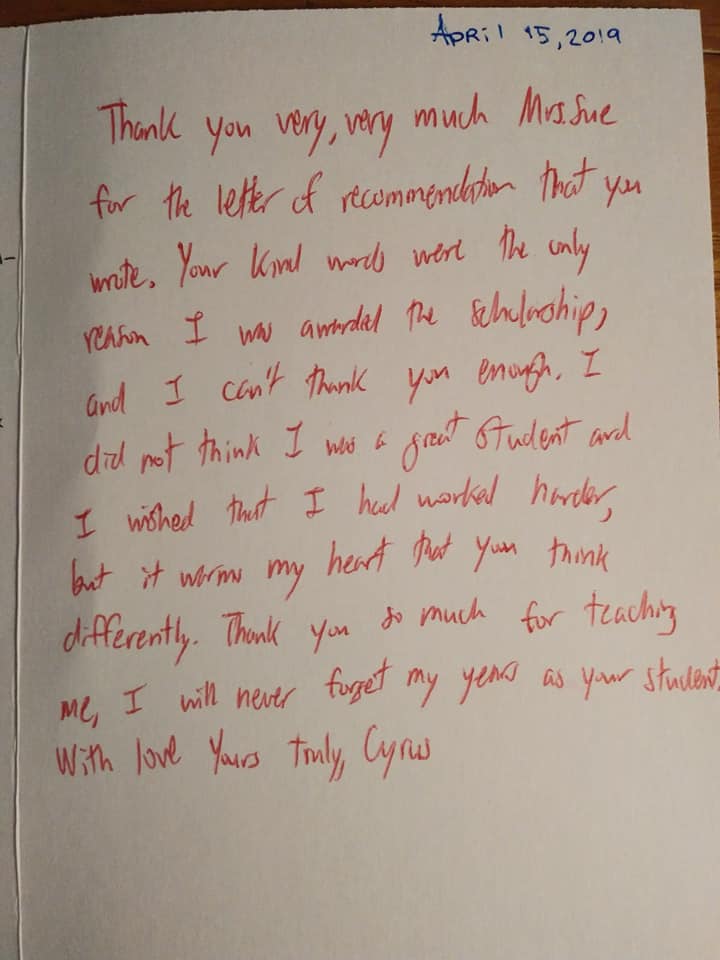 April 15, 2019
Thank you very, very much Mrs. Sue
for the letter of recommendation that you
wrote. Your kind words were the only
reason I was awarded the scholarship,
and I can't thank you enough. I
did not think I was a great student and
I wished that I had worked harder,
but it warms my heart that you think
differently. Thank you so much for teaching
me, I will never forget my years as your student.
With love Yours truly, Cyrus